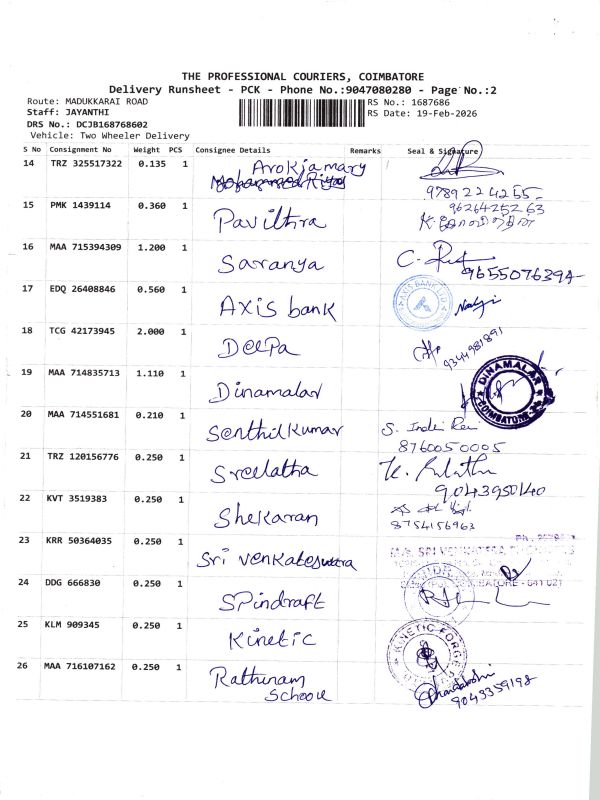 THE PROFESSIONAL COURIERS, COIMBATORE
Delivery Runsheet - PCK - Phone No.:9047080280 - Page No.:2
Route: MADUKKARAI ROAD
RS No.: 1687686
Staff: JAYANTHI
RS Date: 19-Feb-2026
DRS No.: DCJB168768602
Vehicle: Two Wheeler Delivery
S No Consignment No Weight PCS Consignee Details Remarks Seal & Signature
14 TRZ 325517322 0.135 1 Arokjamary
Mohammed Riyas
9789224255
15 PMK 1439114 0.360 1 Pavithra
9626425263
16 MAA 715394309 1.200 1 Saranya
9655076394
17 EDQ 26408846 0.560 1 Axis bank
AXIS BANK LTD
18 TCG 42173945 2.000 1 Deepa
9344981891
19 MAA 714835713 1.110 1 Dinamalar
DINAMALAR
COIMBATORE
20 MAA 714551681 0.210 1 Senthil Kumar
S. Indi Rani
8760050005
21 TRZ 120156776 0.250 1 Sreelatha
9043950140
22 KVT 3519383 0.250 1 Shekaran
8754156963
23 KRR 50364035 0.250 1 Sri Venkateswara
M/s. SRI
COIMBATORE - 641 021
24 DDG 666830 0.250 1 Spindraft
25 KLM 909345 0.250 1 Kinetic
KINETIC FORGE
26 MAA 716107162 0.250 1 Rathinam
School
9043359198